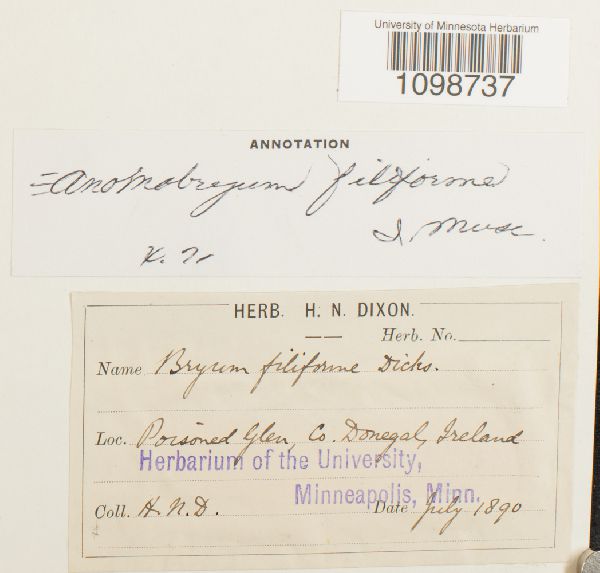 University of Minnesota Herbarium
1098737
ANNOTATION
=Anomobryum filiforme
I. Musc.
K. N
HERB. H. N. DIXON.
Herb. No.
Name Bryum filiforme Dicks.
Loc. Poisoned Glen, Co. Donegal, Ireland
Herbarium of the University,
Minneapolis, Minn.
Coll. H.N.D. Date July 1890